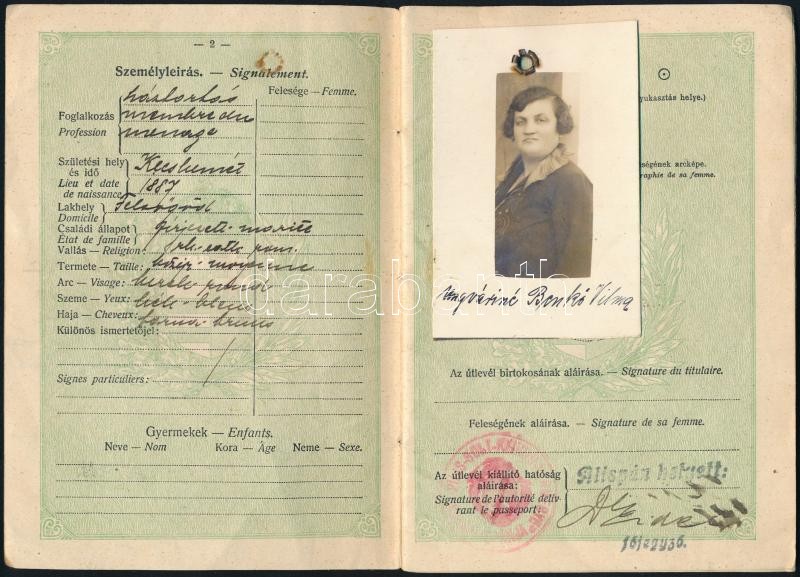 — 2 —
Személyleírás. — Signalement.
Felesége — Femme.
Foglalkozás
Profession
háztartás
membre du
menage
Születési hely
és idő
Lieu et date
de naissance
Kecskemét
1887
Lakhely
Domicile
Felsőgöd
Családi állapot
État de famille
férjezett - mariée
Vallás — Religion:
rk. cath. rom.
Termete — Taille:
közép - moyenne
Arc — Visage:
kerek - rond
Szeme — Yeux:
kék - bleus
Haja — Cheveux:
barna - bruns
Különös ismertetőjel:
Signes particuliers:
Gyermekek — Enfants.
Neve — Nom Kora — Âge Neme — Sexe.
yukasztás helye.)
ségének arcképe.
raphie de sa femme.
Ungváriné Benkó Vilma
darabanth.com
Az útlevél birtokosának aláírása. — Signature du titulaire.
Feleségének aláírása. — Signature de sa femme.
Az útlevél kiállító hatóság
aláírása:
Signature de l'autorité déliv-
rant le passeport:
Alispán helyett: